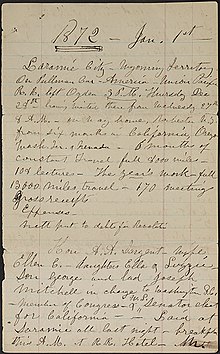 1872 - Jan. 1st
Laramie City - Wyoming Territory
On Pullman Car - America - Union Pacific
R. R. left Ogden Thursday Dec
28th, having written there from Wednesday 27
A.M. - on way home, Rochester N.Y.
from six months in California, Oregon
Wash. Ter. & Nevada - 6 months of
constant travel full 8,000 miles -
108 lectures - The year's work - full
13,000 miles travel - 170 meetings
Gross receipts
Expenses
Nett put to debts for Revolution
Hon. A. A. Sargent, wife,
Mrs. E. - daughters Ella & Lizzie
Son George and lad Joseph
Mitchell in charge to Washington D.C.
Member of Congress - & U.S. Senator elect
for California - Laid at
Laramie all last night - breakfast
this A.M. at R. R. Hotel - Mrs